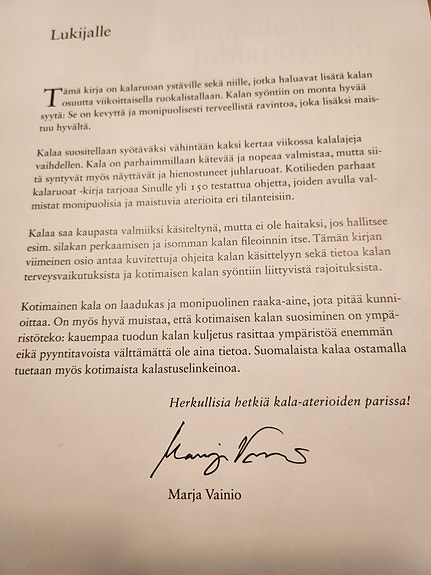 Lukijalle
Tämä kirja on kalaruoan ystäville sekä niille, jotka haluavat lisätä kalan
osuutta viikoittaisella ruokalistallaan. Kalan syöntiin on monta hyvää
syytä: Se on kevyttä ja monipuolisesti terveellistä ravintoa, joka lisäksi mais-
tuu hyvältä.
Kalaa suositellaan syötäväksi vähintään kaksi kertaa viikossa kalalajeja
vaihdellen. Kala on parhaimmillaan kätevää ja nopeaa valmistaa, mutta sii-
tä syntyvät myös näyttävät ja hienostuneet juhlaruoat. Kotilieden parhaat
kalaruoat -kirja tarjoaa Sinulle yli 150 testattua ohjetta, joiden avulla val-
mistat monipuolisia ja maistuvia aterioita eri tilanteisiin.
Kalaa saa kaupasta valmiiksi käsiteltynä, mutta ei ole haitaksi, jos hallitsee
esim. silakan perkaamisen ja isomman kalan fileoinnin itse. Tämän kirjan
viimeinen osio antaa kuvitettuja ohjeita kalan käsittelyyn sekä tietoa kalan
terveysvaikutuksista ja kotimaisen kalan syöntiin liittyvistä rajoituksista.
Kotimainen kala on laadukas ja monipuolinen raaka-aine, jota pitää kunni-
oittaa. On myös hyvä muistaa, että kotimaisen kalan suosiminen on ympä-
ristöteko: kauempaa tuodun kalan kuljetus rasittaa ympäristöä enemmän
eikä pyyntitavoista välttämättä ole aina tietoa. Suomalaista kalaa ostamalla
tuetaan myös kotimaista kalastuselinkeinoa.
Herkullisia hetkiä kala-aterioiden parissa!
Marja Vainio
Marja Vainio